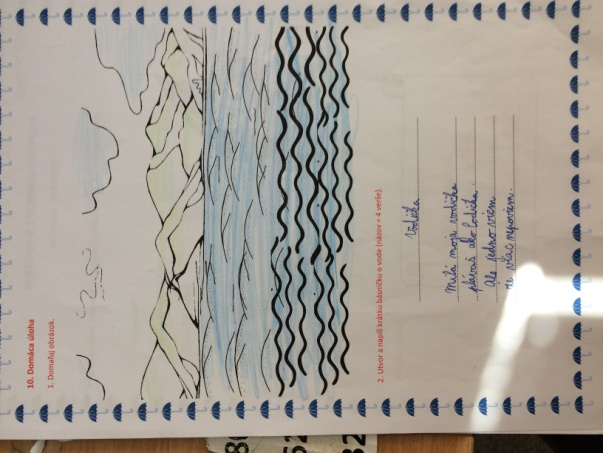 10. Domáca úloha
1. Domaľuj obrázok.
2. Utvor a napíš krátku básničku o vode (názov + 4 verše).
Vodička
Milá moja vodička
plávaš ako lodička.
Ale jedno viem
že viac nepoviem.